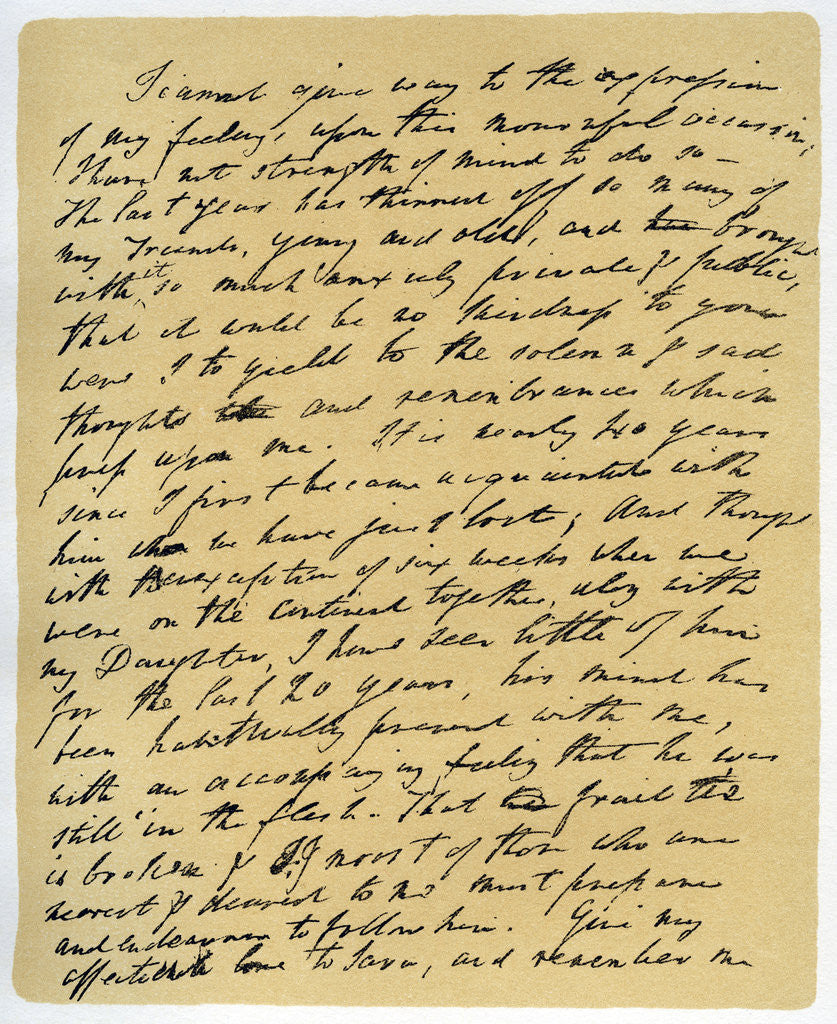 I cannot give way to the expression
of my feelings upon this mournful occasion;
I have not strength of mind to do so —
The last year has thinned off so many of
my Friends, young and old, and brought
with it so much anxiety private & public,
that it would be no kindness to you
were I to yield to the solemn & sad
thoughts and remembrances which
press upon me. It is nearly 40 years
since I first became acquainted with
him whom we have just lost; And though
with the exception of six weeks when we
were on the continent together, along with
my Daughter, I have seen little of him
for the last 20 years, his mind has
been habitually present with me,
with an accompanying feeling that he was
still in the flesh. That frail tie
is broken & I, & most of those who are
nearest & dearest to me must prepare
and endeavour to follow him. Give my
affectionate love to Sara, and remember me